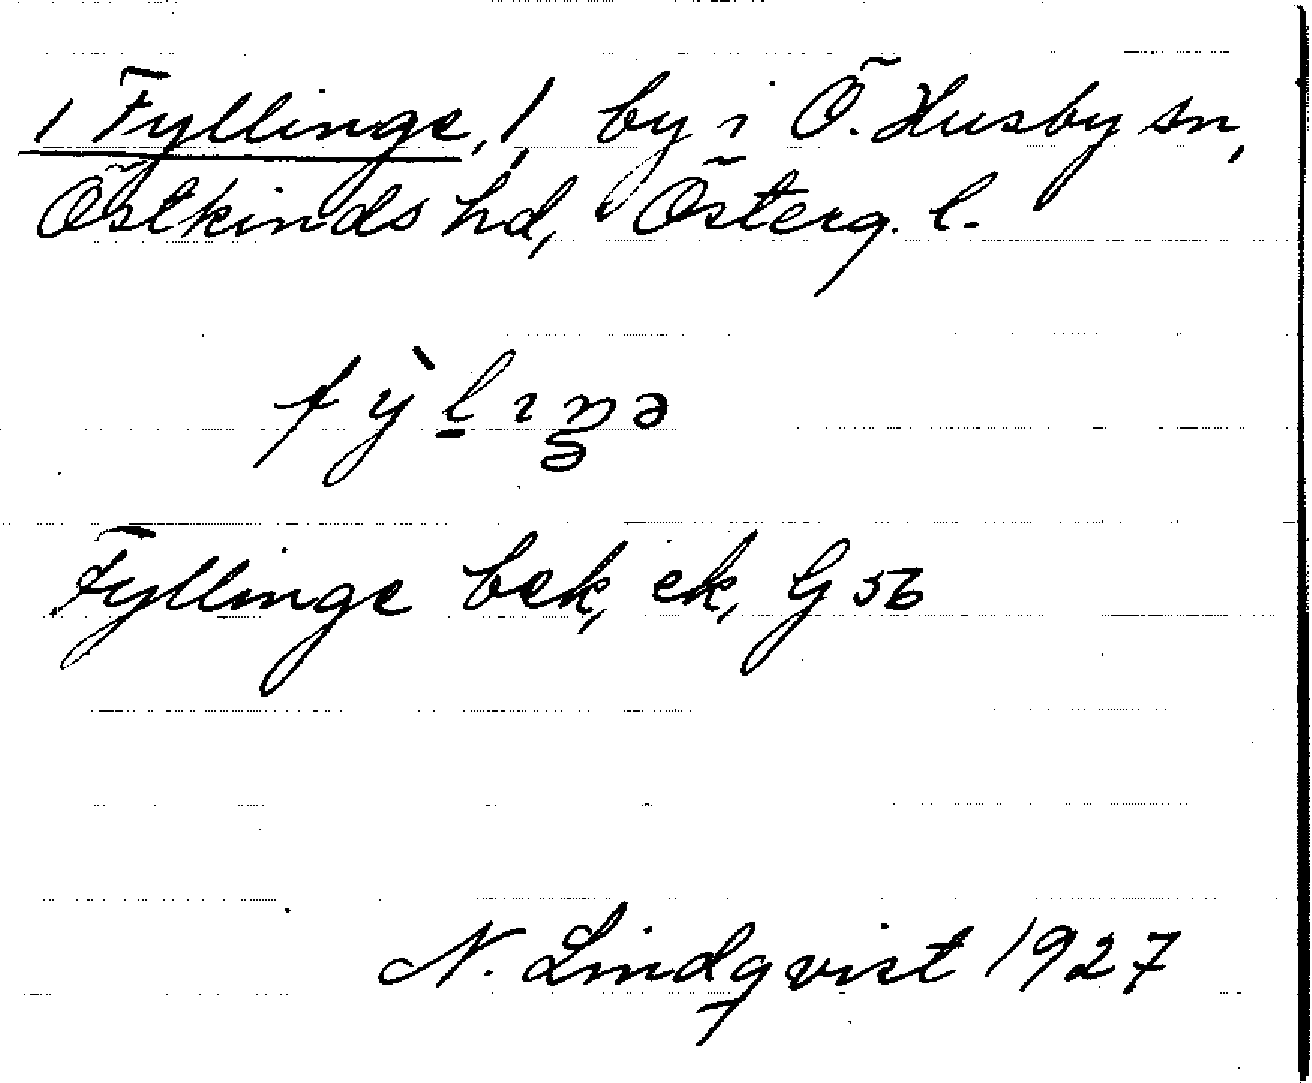 1 Fyllinge, 1, by i Ö. Husby sn,
Östkinds hd, Österg. l.
fỳl̠ıŋə
Fyllinge bek, ek, G 56
N. Lindqvist 1927